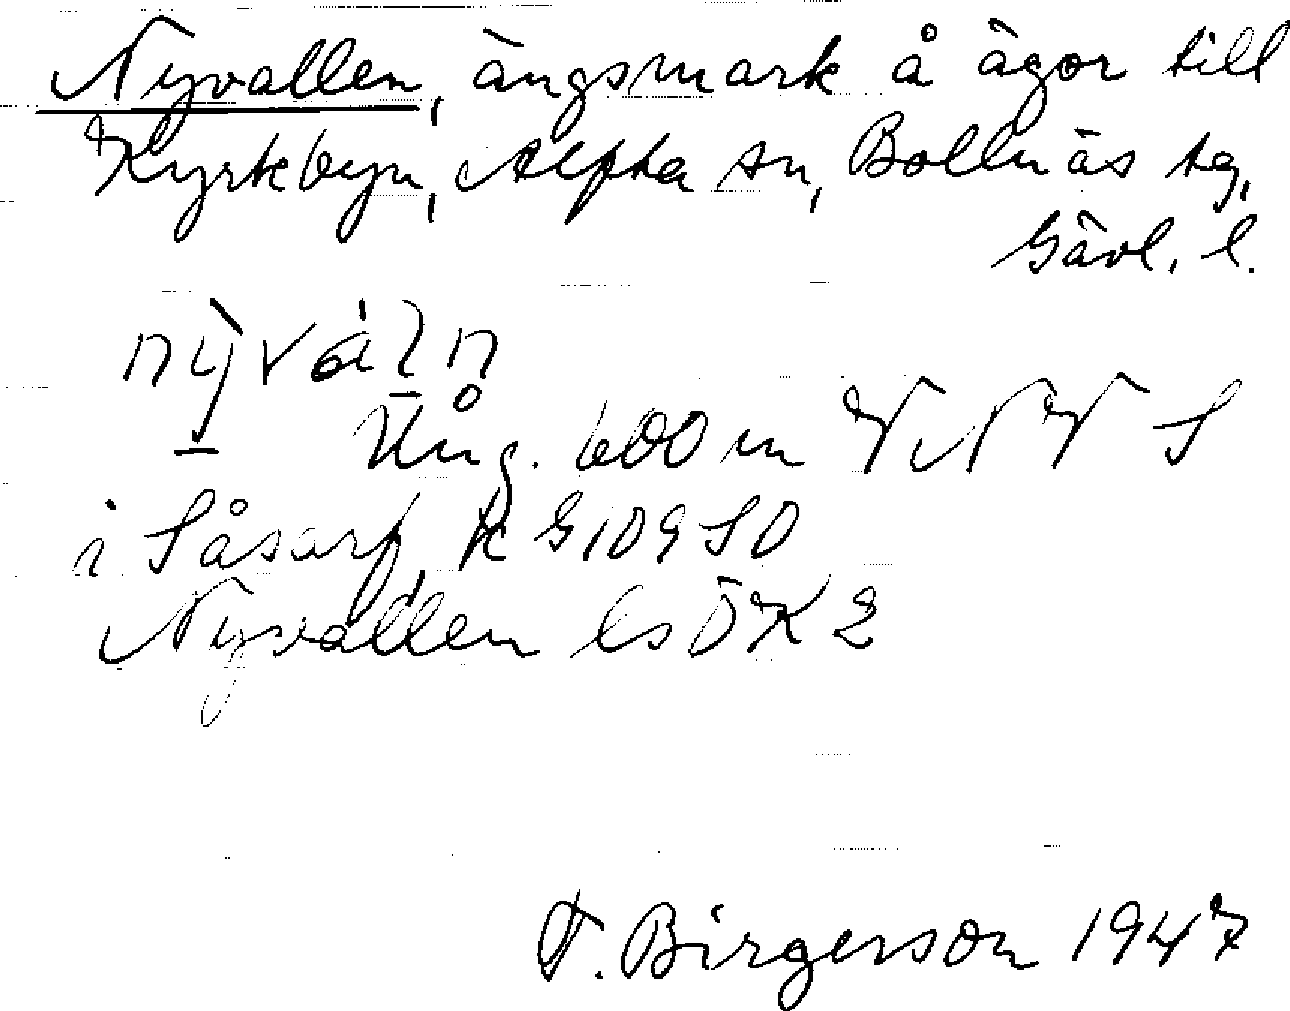 Nyvallen, ängsmark å ägor till
Kyrkbyn, Alfta sn, Bollnäs tg,
Gävl. l.
Ung. 600 m VNV S
i Såsarf, k G 109 SO
Nyvallen ls ÖK 2
T. Birgerson 1947